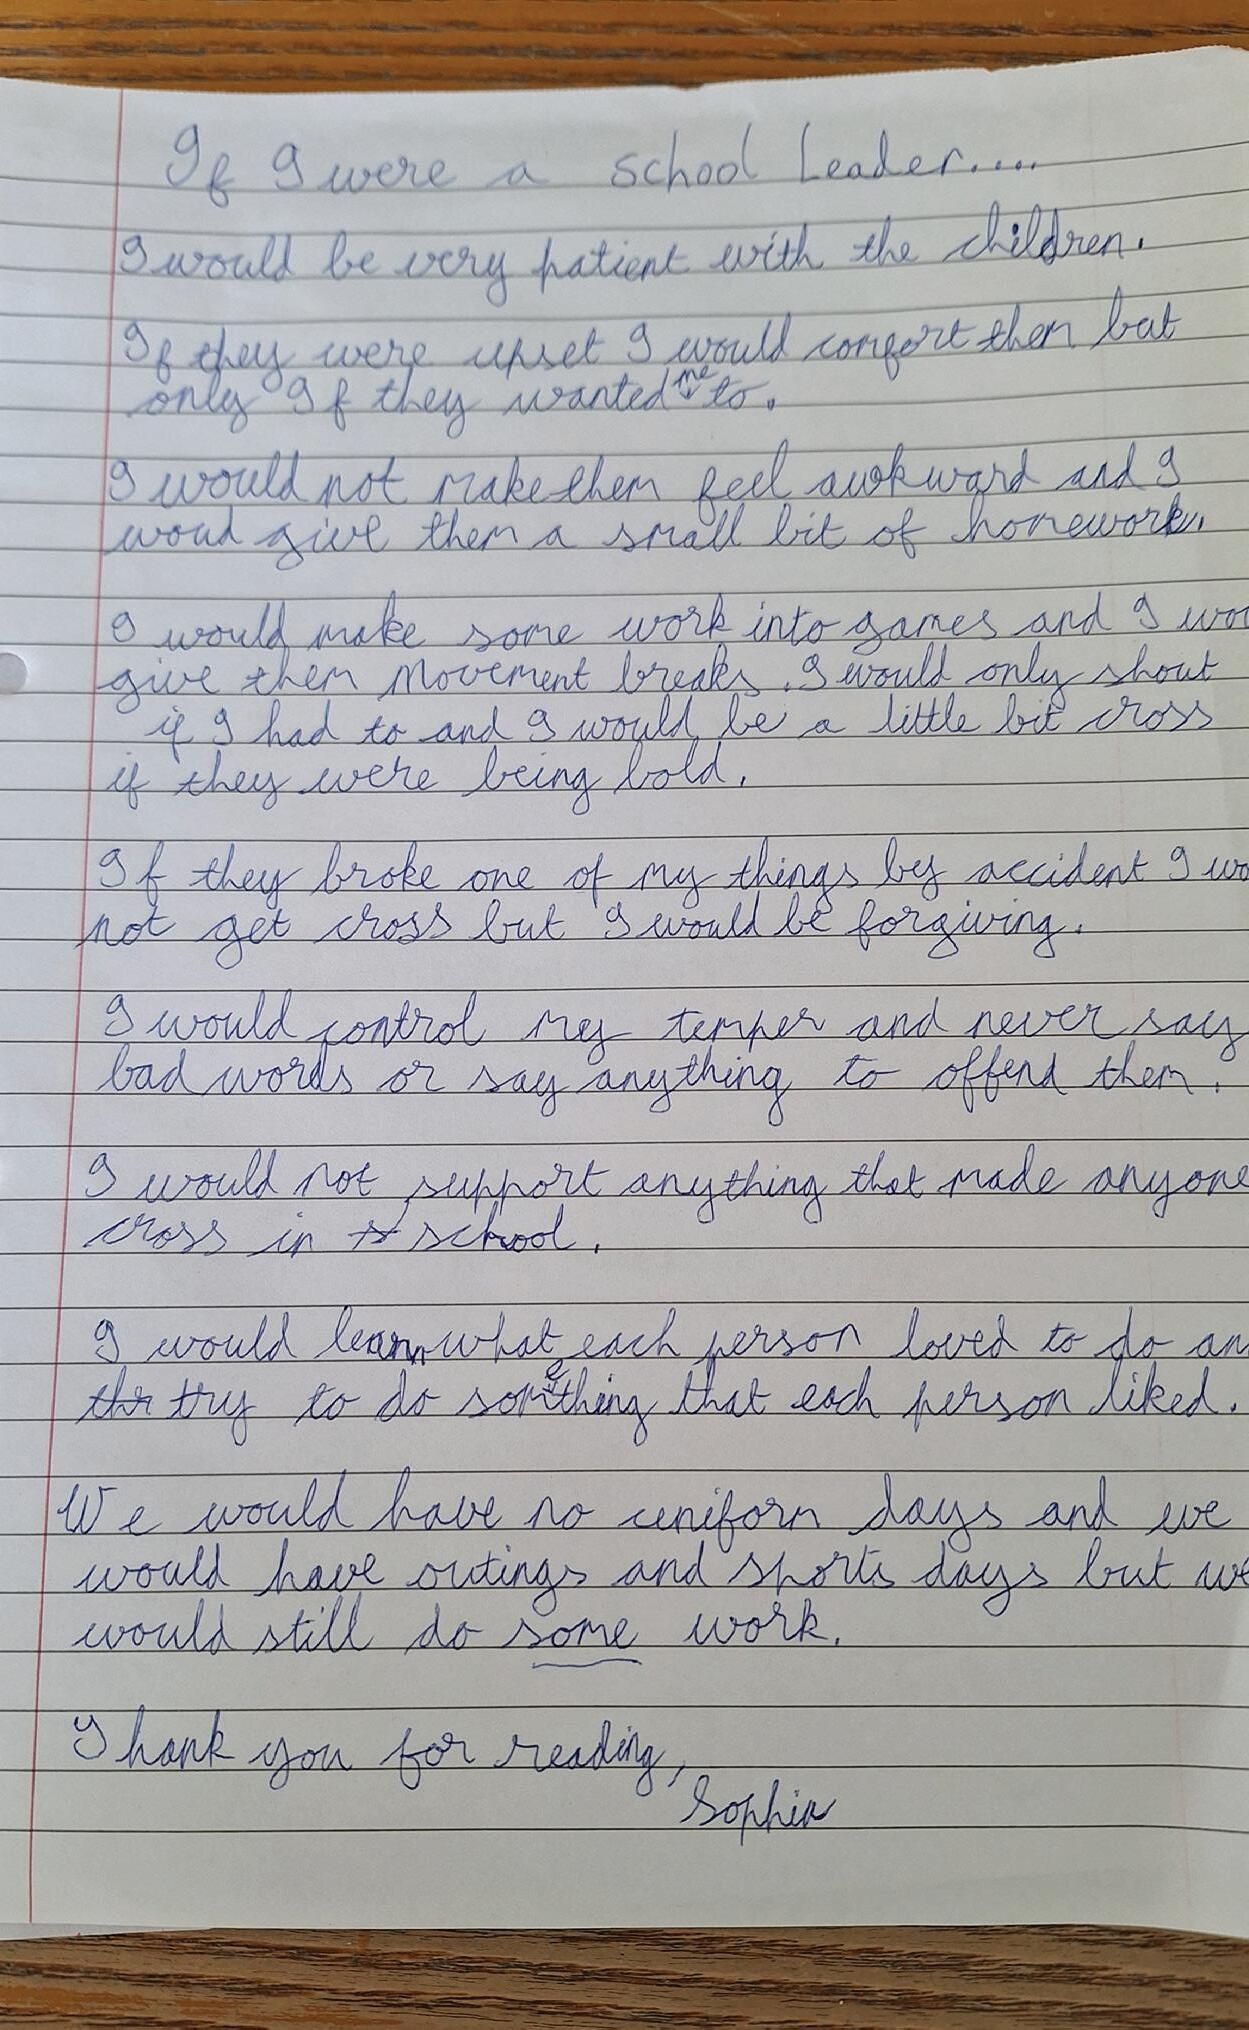 If I were a school Leader....
I would be very patient with the children.
If they were upset I would comfort them but
only If they wanted me to.
I would not make them feel awkward and I
woud give them a small bit of homework.
I would make some work into games and I wou
give them movement breaks. I would only shout
if I had to and I would be a little bit cross
if they were being bold.
If they broke one of my things by accident I wo
not get cross but I would be forgiving.
I would control my temper and never say
bad words or say anything to offend them.
I would not support anything that made anyone
cross in school.
I would learn what each person loved to do an
try to do something that each person liked.
We would have no uniform days and we
would have outings and sports days but we
would still do some work.
Thank you for reading,
Sophia